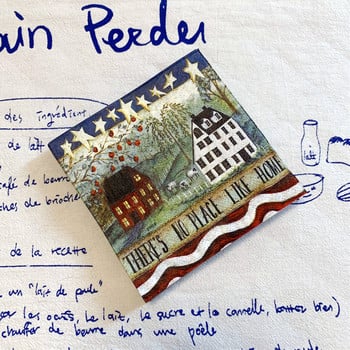 ain Perdu
des ingrédient
de lait
lait
café de beurre
ches de brioche
THERE'S NO PLACE LIKE HOME
de la recette
un "lait de poule"
les oeufs, le lait, le sucre et la cannelle, battez bien)
chauffer de beurre dans une poêle